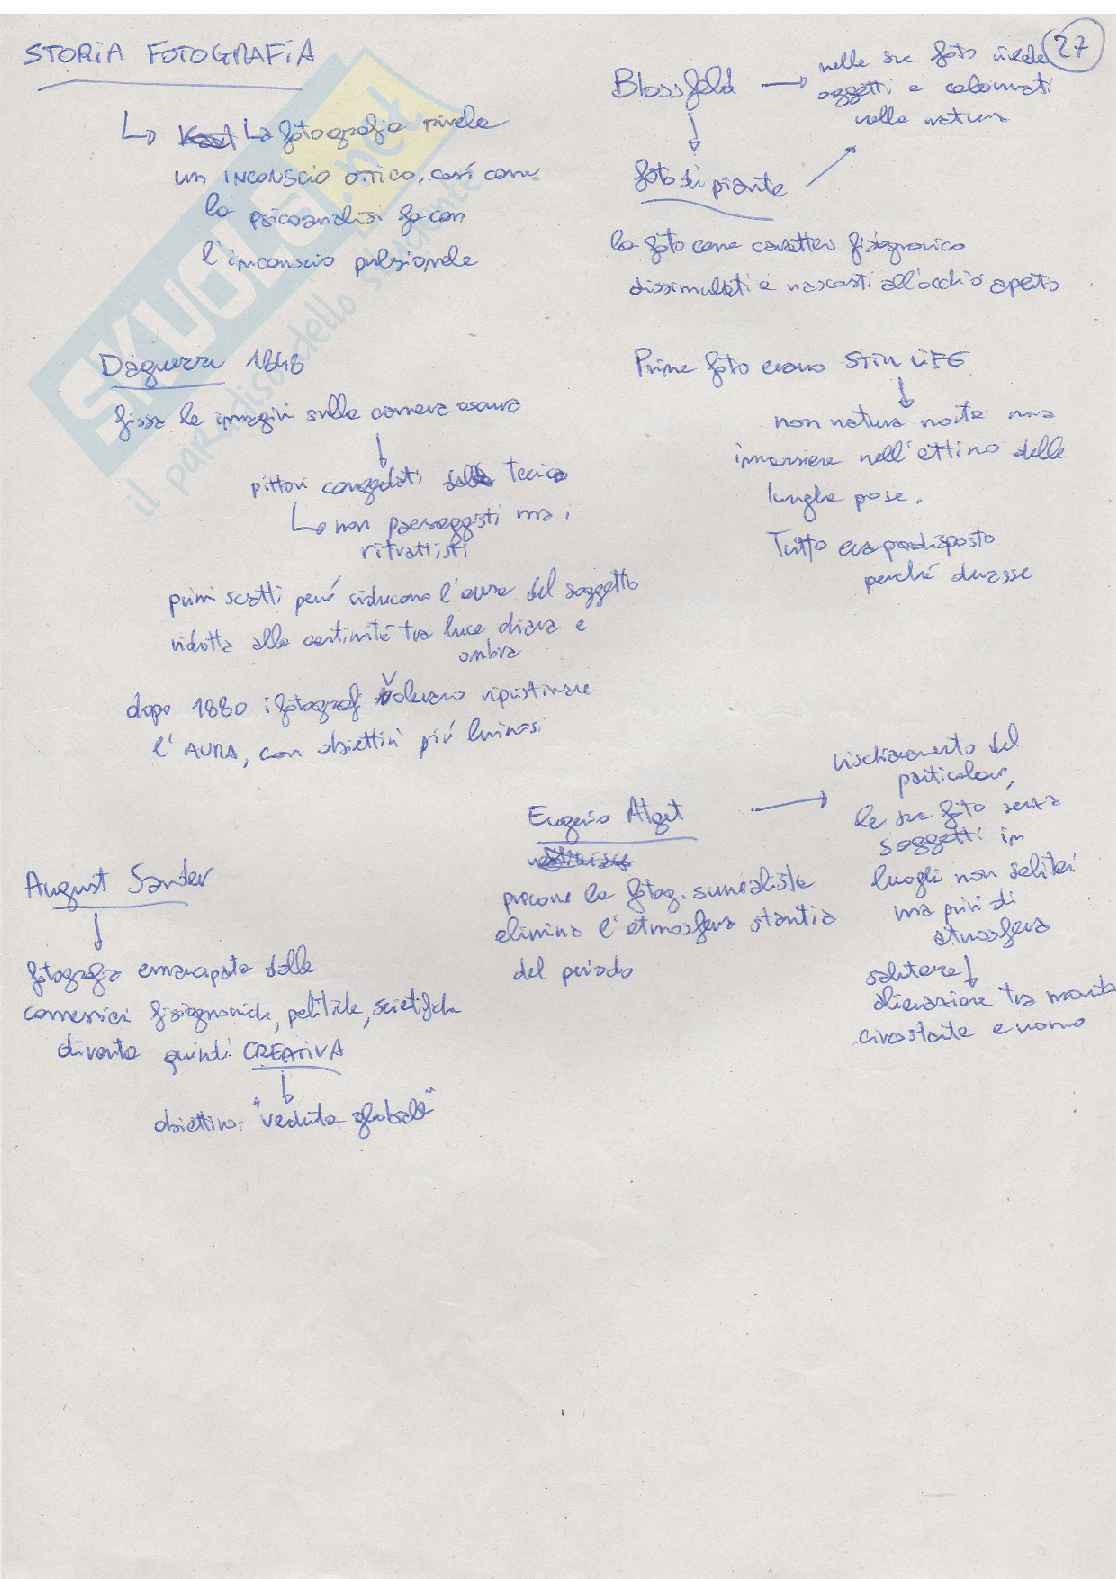 STORIA FOTOGRAFIA
27
↳ La fotografia rivela
un INCONSCIO OTTICO, così come
la psicoanalisi fa con
l'inconscio pulsionale
Blossfeld → nelle sue foto
oggetti e
nella natura
foto di piante
la foto come caratteri fisiognomico
dissimulati e nascosti all'occhio aperto
Daguerre 1848
fissa le imagini sulla camera oscura
pittori congedati tecnica
↳ non paesaggisti ma
ritrattisti
primi scatti però riducono l'aura del soggetto
ridotta alla continuità tra luce chiara e
ombra
dopo 1880 i fotografi volevano ripristinare
l'AURA, con obiettivi più luminosi
Prime foto erano STILL LIFE
non natura morta ma
immersione nell'attimo delle
lunghe pose.
Tutto era predisposto
perché durasse
Eugenio Atget
precorre la fotog. surrealista
elimina l'atmosfera stantia
del periodo
del
particolare,
le sue foto senza
soggetti in
luoghi non
ma privi di
atmosfera
salutare
alienazione tra mondo
circostante e uomo
August Sander
fotografia emancipata dalle
connessioni fisiognomiche, politiche, scientifiche
diventa quindi CREATIVA
obiettivo: "veduta globale"
SKUOLA.net
il paradiso dello studente